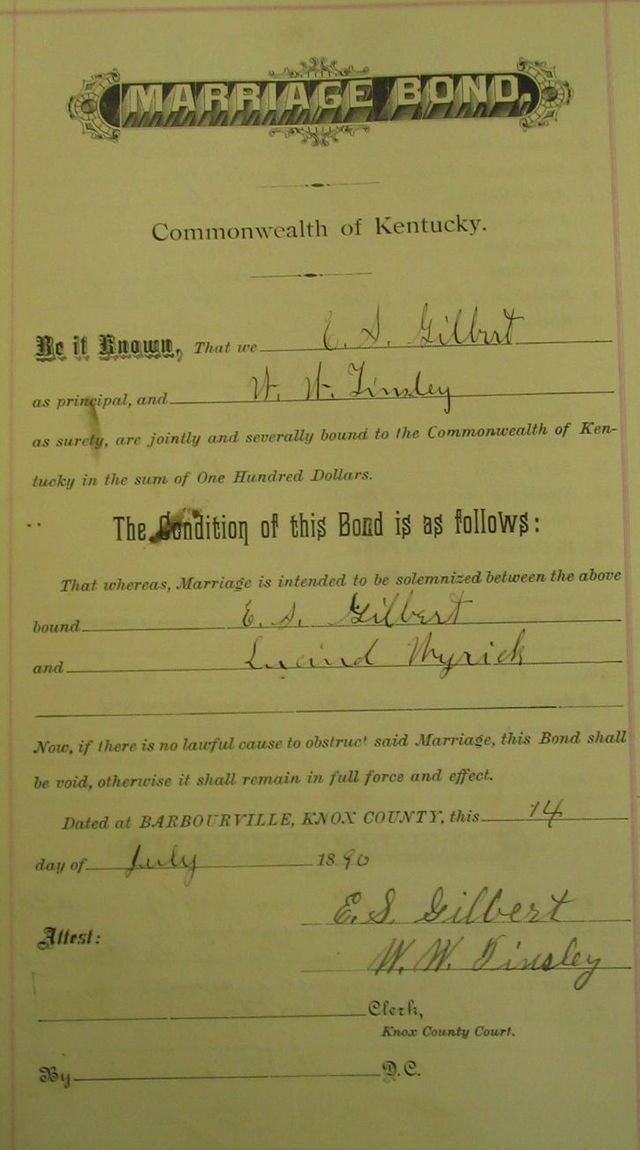 MARRIAGE BOND.
Commonwealth of Kentucky.
Be it Known, That we E. S. Gilbert
as principal, and W. W. Tinsley
as surety, are jointly and severally bound to the Commonwealth of Ken-
tucky in the sum of One Hundred Dollars.
The Condition of this Bond is as follows:
That whereas, Marriage is intended to be solemnized between the above
bound E. S. Gilbert
and Lucind Myrick
Now, if there is no lawful cause to obstruct said Marriage, this Bond shall
be void, otherwise it shall remain in full force and effect.
Dated at BARBOURVILLE, KNOX COUNTY, this 14
day of July 1890
E. S. Gilbert
Attest:
W. W. Tinsley
Clerk,
Knox County Court.
By D. C.